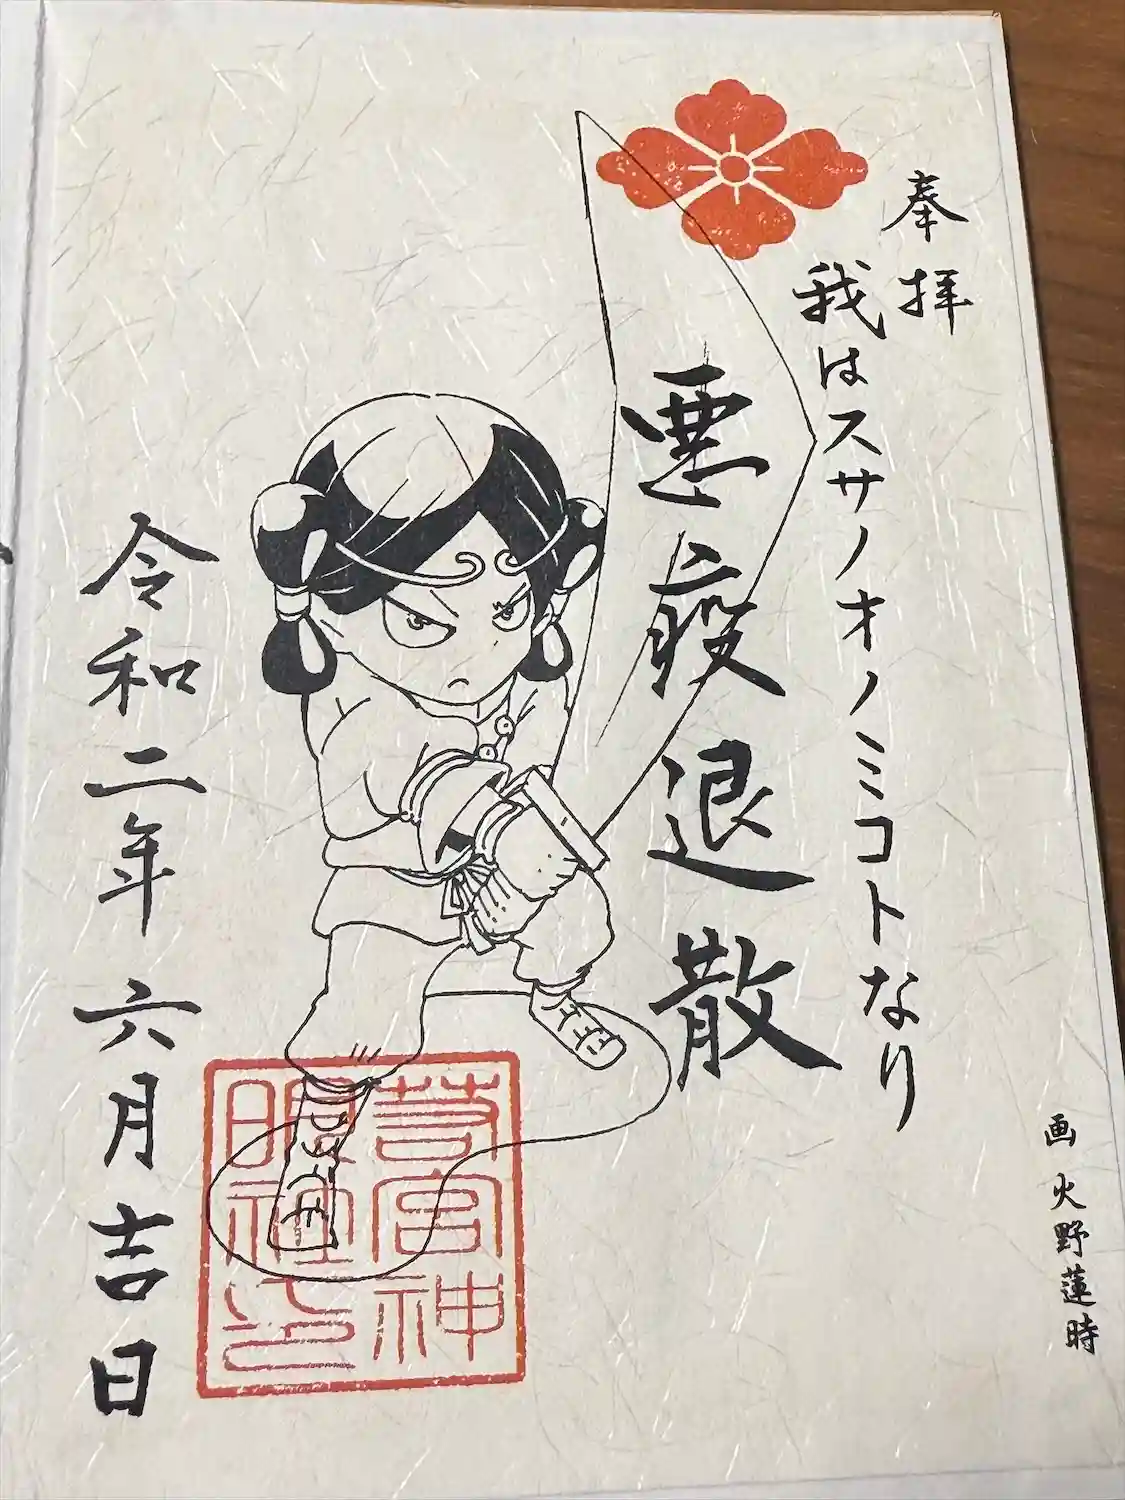 奉拝
我はスサノオノミコトなり
悪疫退散
令和二年六月吉日
画 火野蓮時